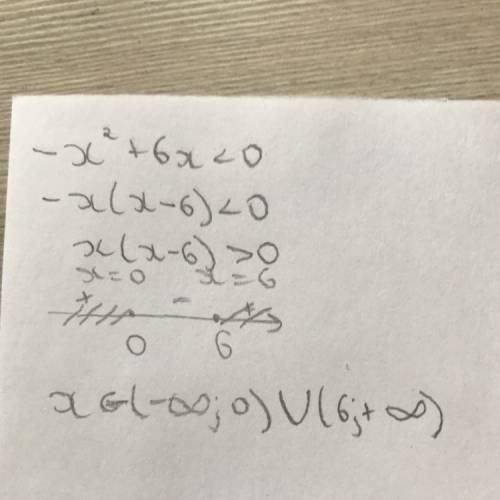 -x² + 6x < 0
-x(x-6) < 0
x(x-6) > 0
x=0 x=6
+ - +
0 6
x∈(-∞;0)∪(6;+∞)